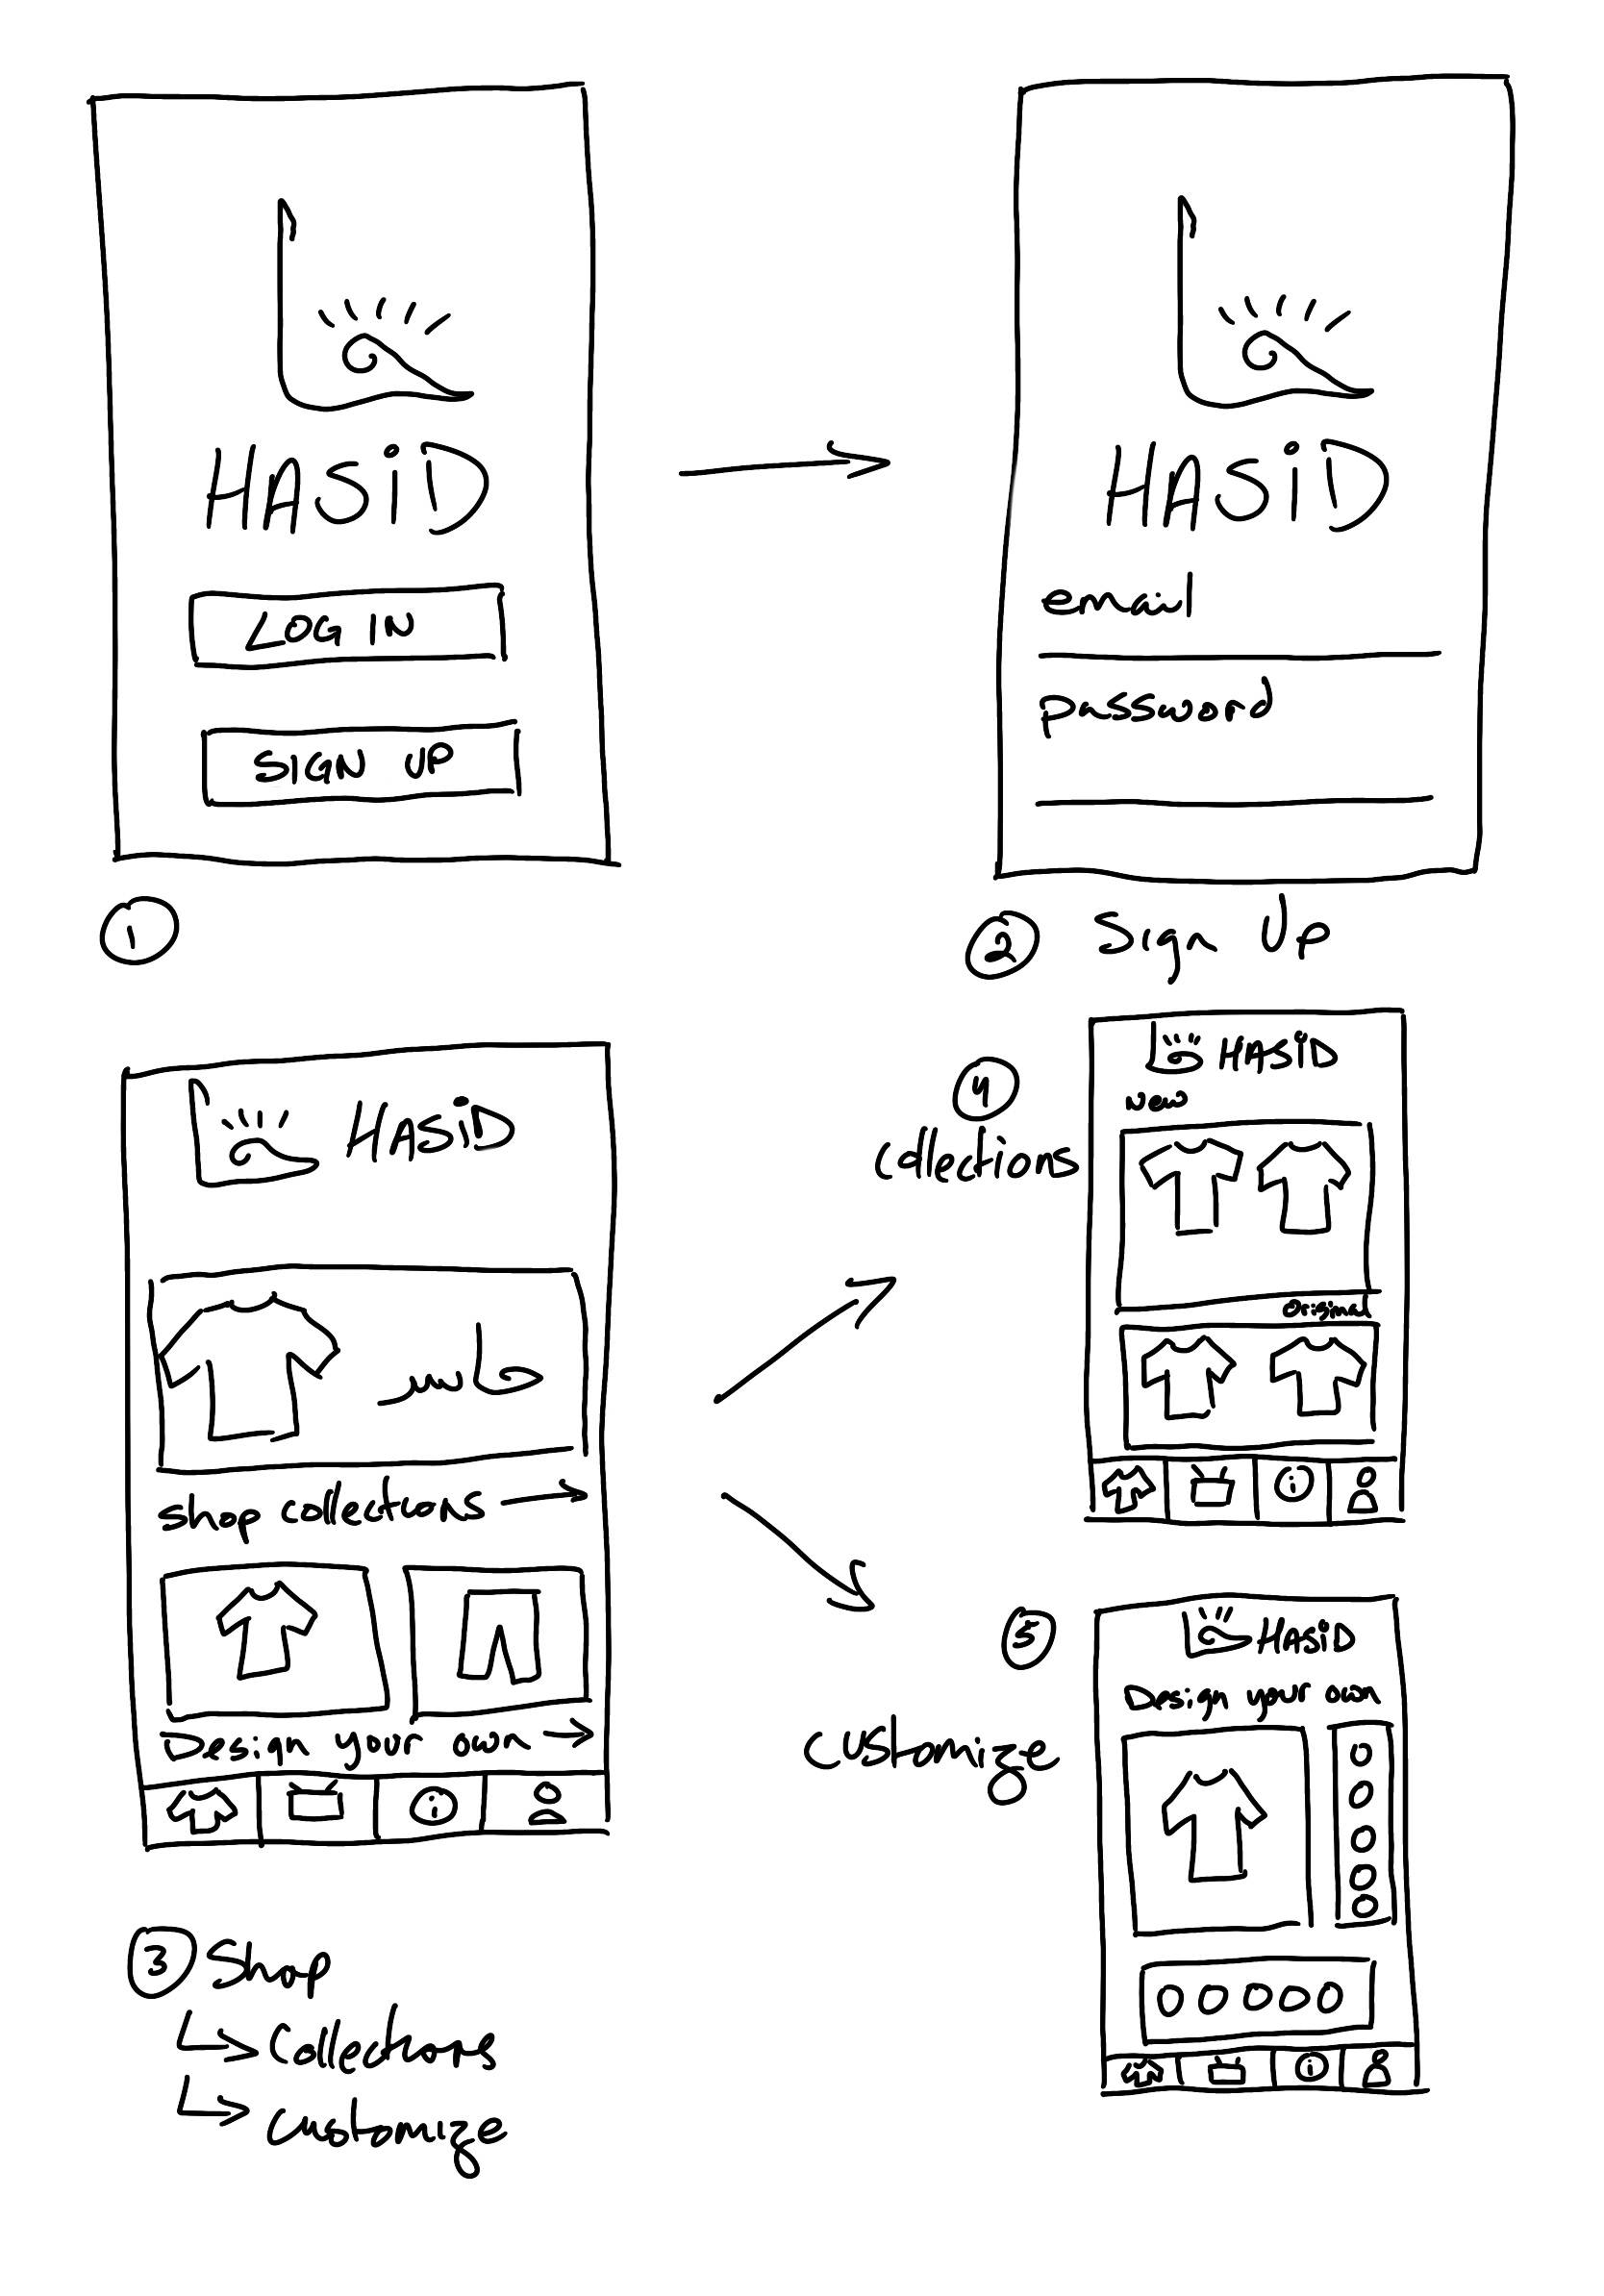 HASiD
LOG IN
SIGN UP
1
HASiD
email
password
2 Sign Up
HASiD
shop collections →
Design your own →
i
3 Shop
↳ Collections
↳ customize
4
collections
HASiD
New
Original
i
5
customize
HASiD
Design your own
i